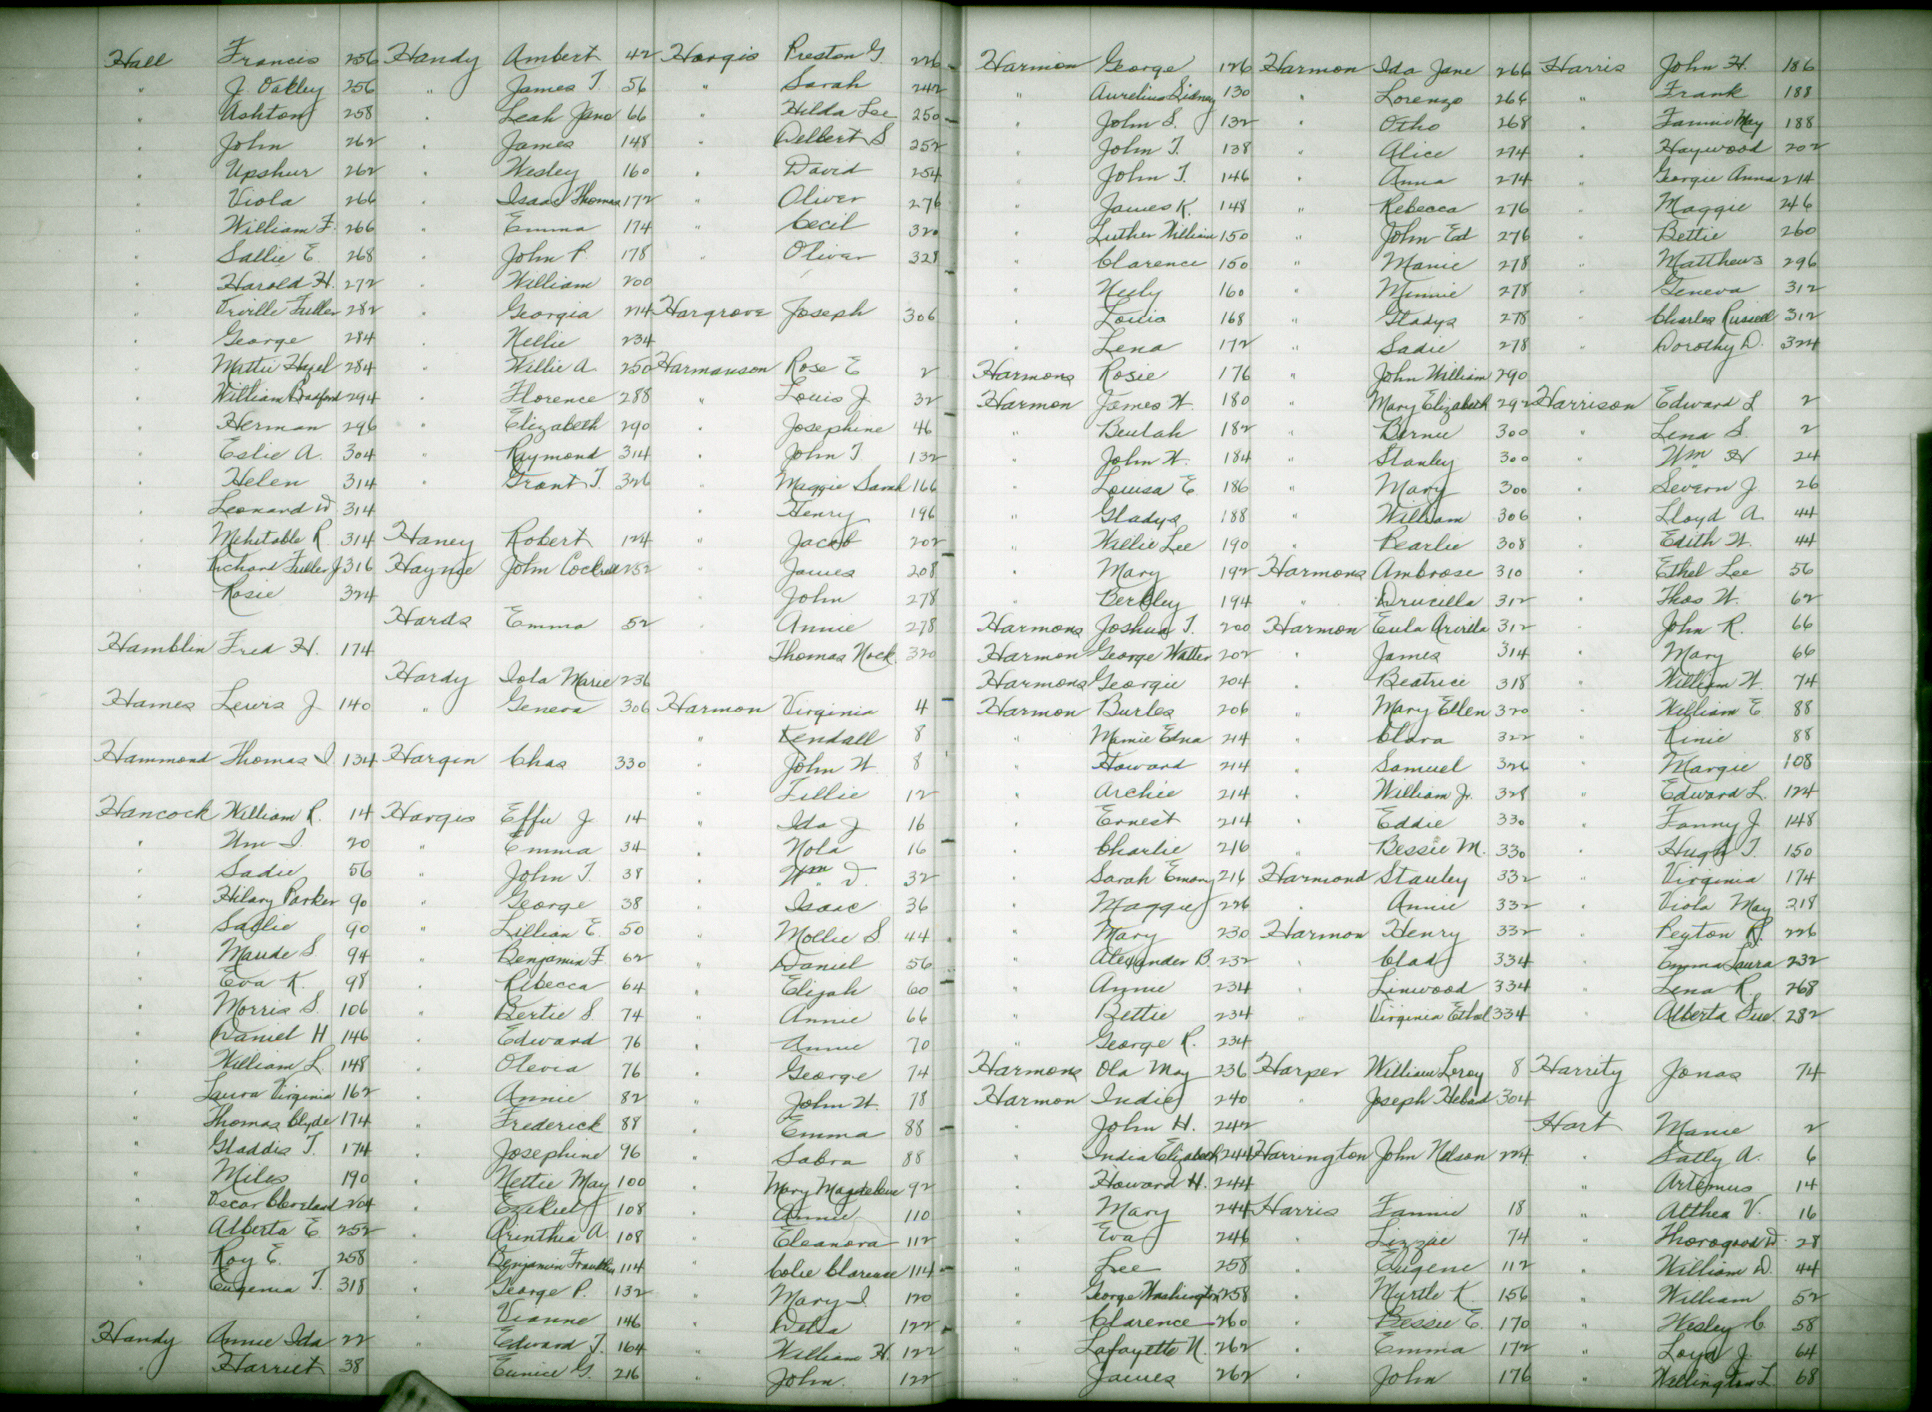 Hall Francis 256
" J. Oakley 256
" Ashton 258
" John 262
" Upshur 262
" Viola 266
" William F. 266
" Sallie E. 268
" Harold H. 272
" Orville Fuller 282
" George 284
" Mattie Hazel 284
" William Bradford 294
" Herman 296
" Eslie A. 304
" Helen 314
" Leonard W 314
" Mehitable R. 314
" Richard Fuller J 316
" Rosie 324
Hamblin Fred H. 174
Hames Lewis J 140
Hammond Thomas I 134
Hancock William R. 14
" Wm I. 20
" Sadie 56
" Hilary Parker 90
" Sallie 90
" Maude S. 94
" Eva K. 98
" Morris S. 106
" Daniel H 146
" William L. 148
" Laura Virginia 162
" Thomas Clyde 174
" Gladdis T. 174
" Miles 190
" Oscar Cleveland 204
" Alberta E. 252
" Roy E. 258
" Eugenia T. 318
Handy Annie Ida 22
" Harriet 38
Handy Ambert 42
" James T. 56
" Leah Jane 66
" James 148
" Wesley 160
" Isaac Thomas 172
" Emma 174
" John P. 178
" William 200
" Georgia 214
" Nellie 234
" Willie A. 250
" Florence 288
" Elizabeth 290
" Raymond 314
" Grant T. 326
Haney Robert 124
Haynie John Cockrell 252
Hards Emma 52
Hardy Iola Marie 236
" Geneva 306
Hargin Chas 330
Hargis Effie J. 14
" Emma 34
" John T. 38
" George 38
" Lillian E. 50
" Benjamin F. 62
" Rebecca 64
" Bertie S. 74
" Edward 76
" Olevia 76
" Annie 82
" Frederick 88
" Josephine 96
" Nettie May 100
" Ezekiel 108
" Arinthia A. 108
" Benjamin Franklin 114
" George P. 132
" Vianne 146
" Edward T. 164
" Eunice G. 216
Hargis Preston G. 226
" Sarah 242
" Hilda Lee 250
" Delbert S 252
" David 254
" Oliver 276
" Cecil 320
" Oliver 328
Hargrove Joseph 306
Harmanson Rose E 2
" Louis J. 32
" Josephine 46
" John T. 132
" Maggie Sarah 166
" Henry 196
" Jacob 202
" James 208
" John 278
" Annie 278
" Thomas Nock 320
Harmon Virginia 4
" Kendall 8
" John W. 8
" Tillie 12
" Ida J 16
" Nola 16
" Wm D. 32
" Isaac 36
" Mollie S. 44
" Daniel 56
" Elijah 60
" Annie 66
" Annie 70
" George 74
" John W. 78
" Emma 88
" Sabra 88
" Mary Magdelene 92
" Annie 110
" Eleanora 112
" Colie Clarence 114
" Mary I. 120
" Delia 122
" William H. 122
" John 122
Harmon George 126
" Aurelius Sidney 130
" John S. 132
" John T. 138
" John T. 146
" James K. 148
" Luther William 150
" Clarence 150
" Neely 160
" Louis 168
" Lena 172
Harmons Rosie 176
Harmon James W. 180
" Beulah 182
" John W. 184
" Louisa E 186
" Gladys 188
" Willie Lee 190
" Mary 192
" Berkley 194
Harmons Joshua T. 200
Harmon George Walter 202
Harmons Georgie 204
Harmon Burles 206
" Mamie Edna 214
" Howard 214
" Archie 214
" Ernest 214
" Charlie 216
" Sarah Emory 216
" Maggie 226
" Mary 230
" Alexander B. 232
" Annie 234
" Bettie 234
" George R. 234
Harmons Ola May 236
Harmon Indie 240
" John H. 242
" India Elizabeth 244
" Howard H. 244
" Mary 244
" Eva 246
" Lee 258
" George Washington 258
" Clarence 260
" Lafayette N. 262
" James 262
Harmon Ida Jane 266
" Lorenzo 266
" Otho 268
" Alice 274
" Anna 274
" Rebecca 276
" John Ed 276
" Manie 278
" Minnie 278
" Gladys 278
" Sadie 278
" John William 290
" Mary Elizabeth 292
" Bernie 300
" Stanley 300
" Mary 300
" William 306
" Pearlie 308
Harmons Ambrose 310
" Drucilla 312
Harmon Eula Arvilla 312
" James 314
" Beatrice 318
" Mary Ellen 320
" Clara 322
" Samuel 326
" William Jr. 328
" Eddie 330
" Bessie M. 330
Harmond Stanley 332
" Annie 332
Harmon Henry 332
" Clad 334
" Linwood 334
" Virginia Ethel 334
Harper William Leroy 8
" Joseph 304
Harrington John Nelson 224
Harris Fannie 18
" Lizzie 74
" Eugene 112
" Myrtle K. 156
" Bessie E. 170
" Emma 172
" John 176
Harris John H. 186
" Frank 188
" Fannie May 188
" Haywood 202
" Georgie Anna 214
" Maggie 246
" Bettie 260
" Matthews 296
" Geneva 312
" Charles Russell 312
" Dorothy D. 324
Harrison Edward L 2
" Lena S. 2
" Wm H 24
" Severn J. 26
" Lloyd A. 44
" Edith W. 44
" Ethel Lee 56
" Thos W. 62
" John R. 66
" Mary 66
" William W 74
" William E 88
" Kinie 88
" Margie 108
" Edward L. 124
" Fanny J. 148
" Hugh T. 150
" Virginia 174
" Viola May 218
" Peyton R. 226
" Emma Laura 232
" Lena R. 268
" Alberta Sue 282
Harrity Jonas 74
Hart Manie 2
" Sally A. 6
" Artemus 14
" Althea V. 16
" Thorogood W. 28
" William D. 44
" William 52
" Wesley C. 58
" Loyd J. 64
" Wellington L 68